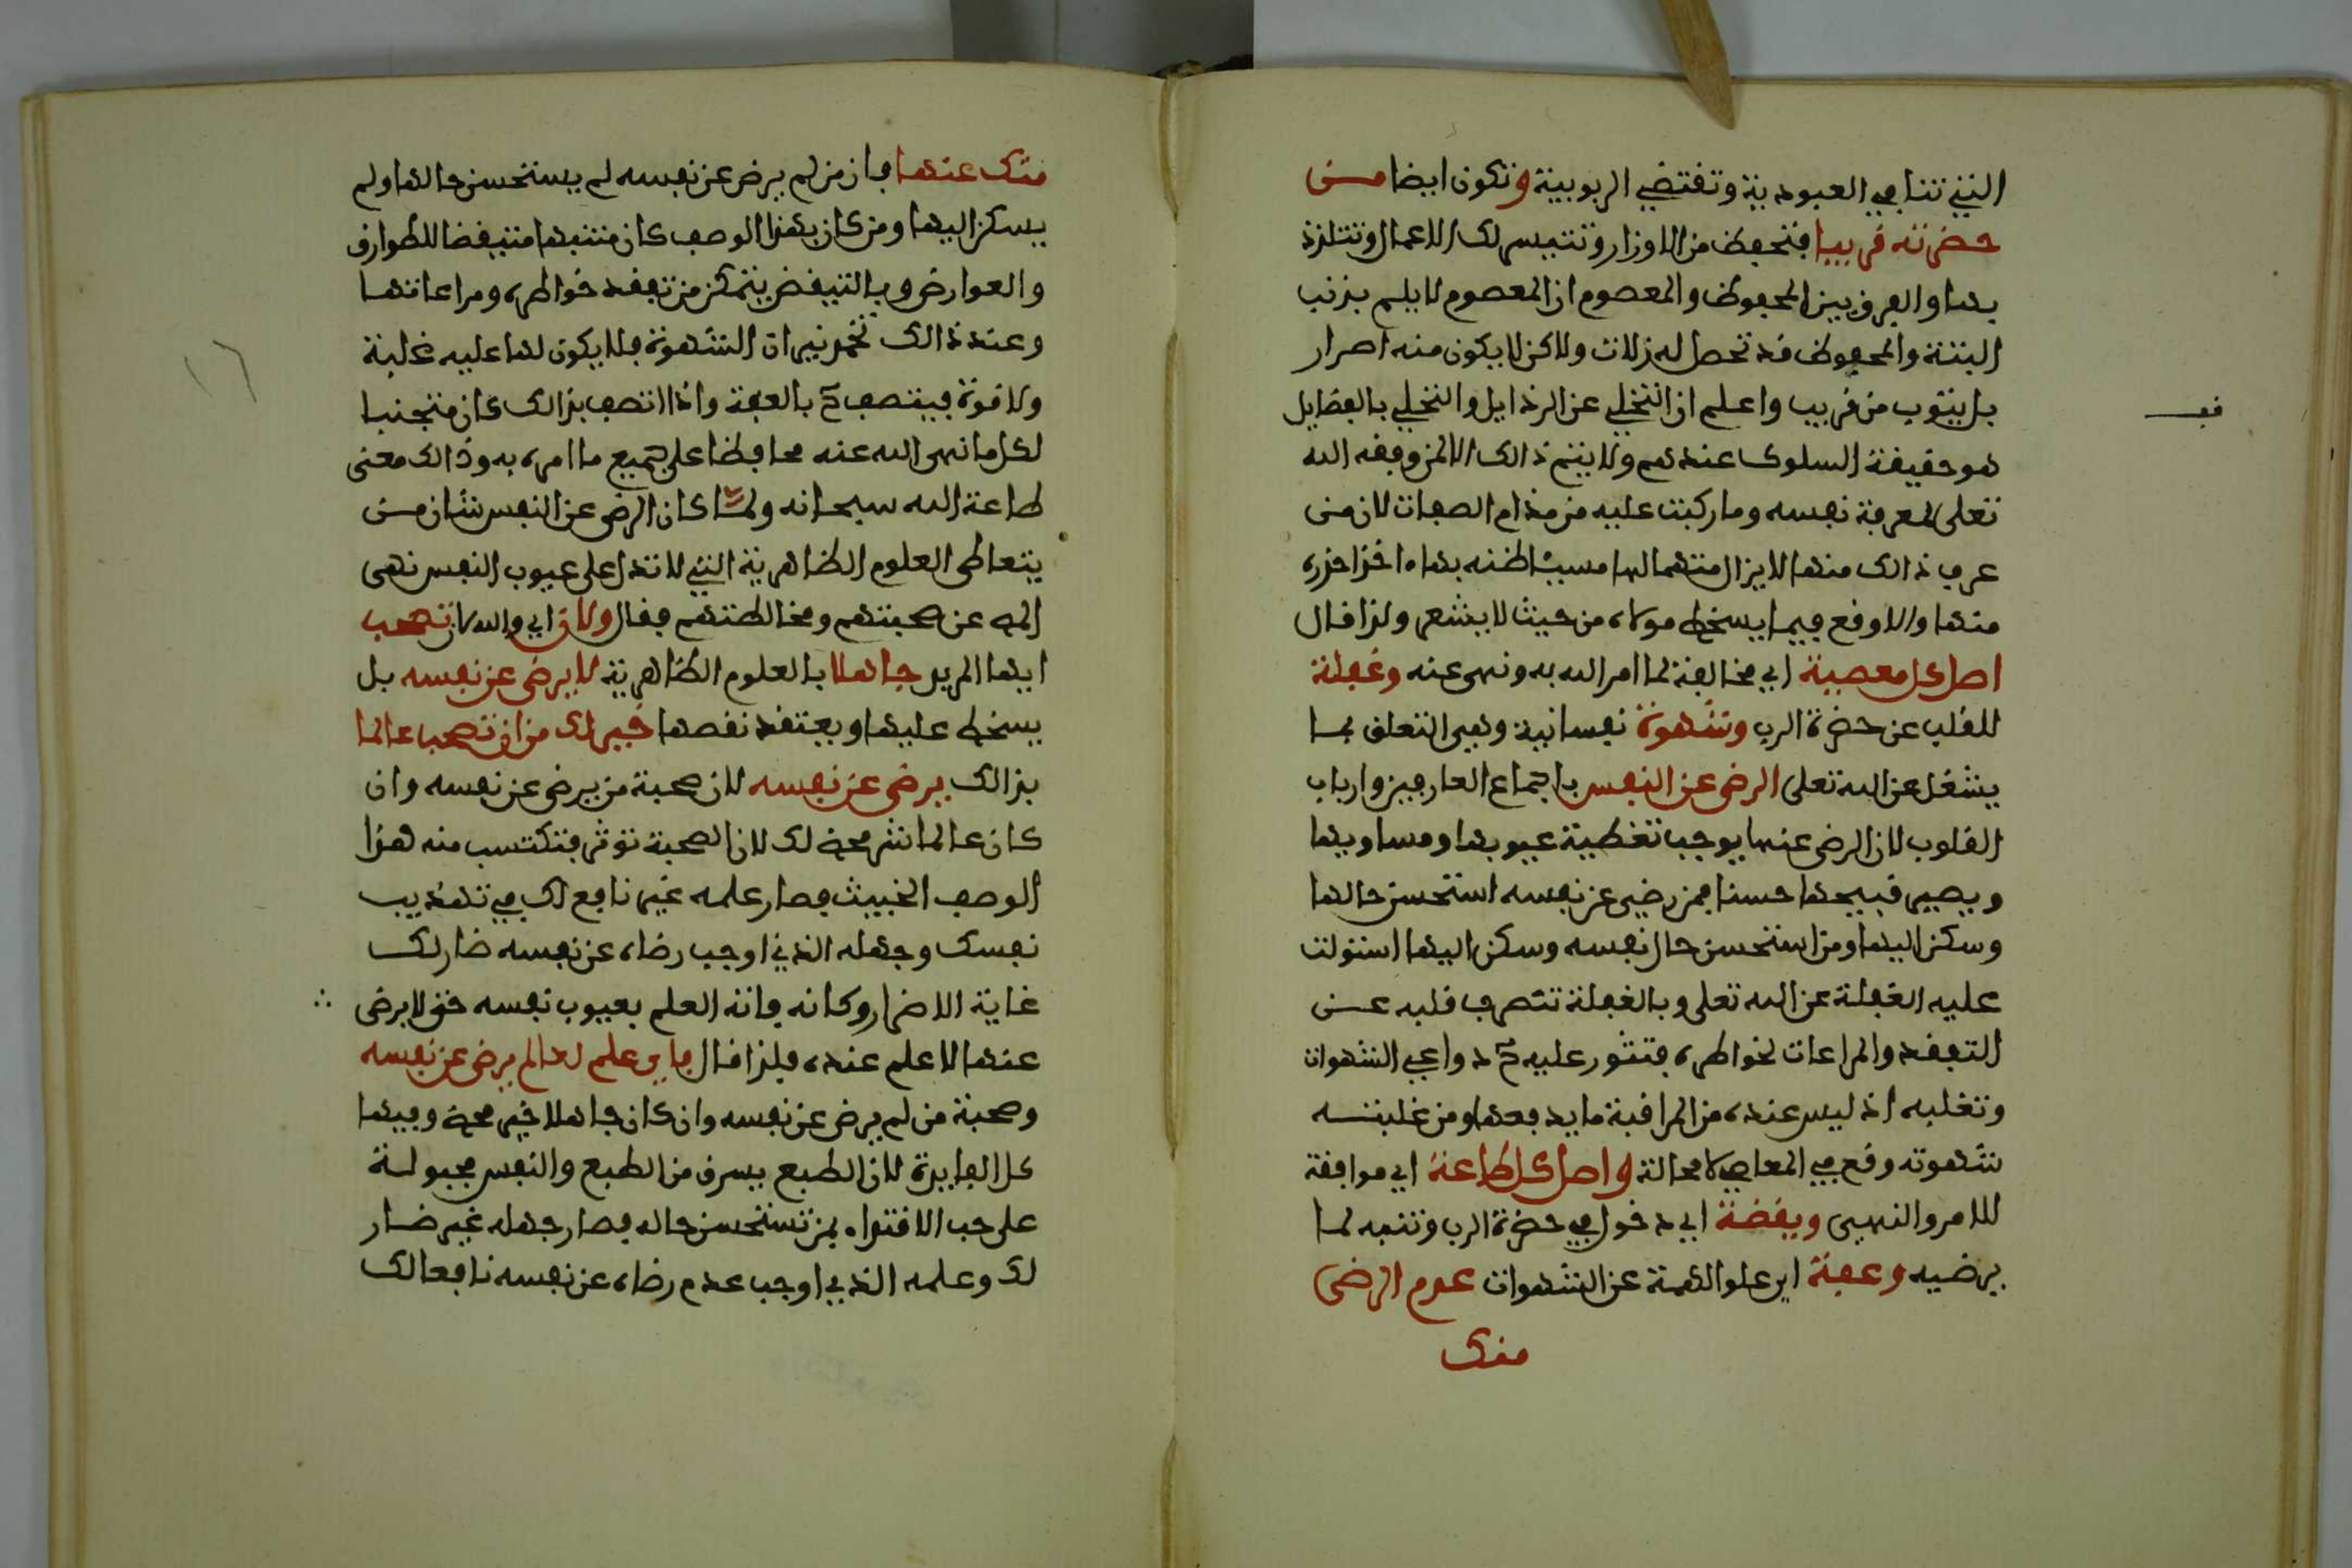 التي تنافي العبودية وتقتضي الربوبية وتكون ايضا من
حضرته قريبا فتحفظ من الاوزار وتتيسر لك الاعمال وتتلذذ
بها والفرق بين المحفوظ والمعصوم ان المعصوم لا يلم بذنب
البتة والمحفوظ قد تحصل له زلات ولاكن لا يكون منه اصرار
بل يتوب من قريب واعلم ان التخلي عن الرذايل والتحلي بالفضايل
قف
هو حقيقة السلوك عندهم ولا يتم ذالك الا لمن وفقه الله
تعلى لمعرفة نفسه وما ركبت عليه من مذام الصفات لان من
عرف ذالك منها لا يزال متهما لها مسيئا ظنه بها اخذا حذره
منها والا وقع فيما يسخط مولاه من حيث لا يشعر ولذا قال
اصل كل معصية اي مخالفة لما امر الله به ونهى عنه وغفلة
للقلب عن حضرة الرب وشهوة نفسانية وهي التعلق بما
يشغل عن الله تعلى الرضى عن النفس باجماع العارفين وارباب
القلوب لان الرضى عنها يوجب تغطية عيوبها ومساويها
ويصير قبيحها حسنا فمن رضي عن نفسه استحسن حالها
وسكن اليها ومن استحسن حال نفسه وسكن اليها استولت
عليه الغفلة عن الله تعلى وبالغفلة تنصرف قلبه عن
التفقد والمراعات لخواطره فتثور عليه ح دواعي الشهوات
وتغلبه اذ ليس عنده من المراقبة ما يدفعها ومن غلبته
شهوته وقع في المعاصي لا محالة واصل كل طاعة اي موافقة
للامر والنهي ويقضة اي دخول في حضرة الرب وتنبه لما
يرضيه وعفة اي علو الهمة عن الشهوات عدم الرضى
منك
منك عنها فان من لم يرض عن نفسه لم يستحسن حالها ولم
يسكن اليها ومن كان بهذا الوصف كان متنبها متيقضا للطوارق
والعوارض وبالتيقض يتمكن من تفقد خواطره ومراعاتها
وعند ذالك تخمد نيران الشهوة فلا يكون لها عليه غلبة
١٦
ولا قوة فيتصف ح بالعفة واذا اتصف بذالك كان متجنبا
لكل ما نهى الله عنه محافظا على جميع ما امره به وذالك معنى
طاعة الله سبحانه ولما كان الرضى عن النفس شان من
يتعاطى العلوم الظاهرية التي لا تدل على عيوب النفس نهى
المص عن صحبتهم ومخالطتهم فقال ولان اي والله لان تصحب
ايها المريد جاهلا بالعلوم الظاهرية لا يرضى عن نفسه بل
يسخط عليها ويعتقد نقصها خير لك من ان تصحب عالما
بذالك يرضى عن نفسه لان صحبة من يرضى عن نفسه وان
كان عالما شر محض لك لان الصحبة تؤثر فتكتسب منه هذا
الوصف الخبيث فصار علمه غير نافع لك في تهذيب
نفسك وجهله الذي اوجب رضاه عن نفسه ضار لك
غاية الاضرار وكانه فاته العلم بعيوب نفسه حتى لا يرضى
عنها لا علم عنده فلذا قال فاي علم لعالم يرضى عن نفسه
وصحبة من لم يرض عن نفسه وان كان جاهلا خير محض وفيها
كل الفايدة لان الطبع يسرق من الطبع والنفس مجبولة
على حب الاقتداء بمن تستحسن حاله فصار جهله غير ضار
لك وعلمه الذي اوجب عدم رضاه عن نفسه نافعا لك